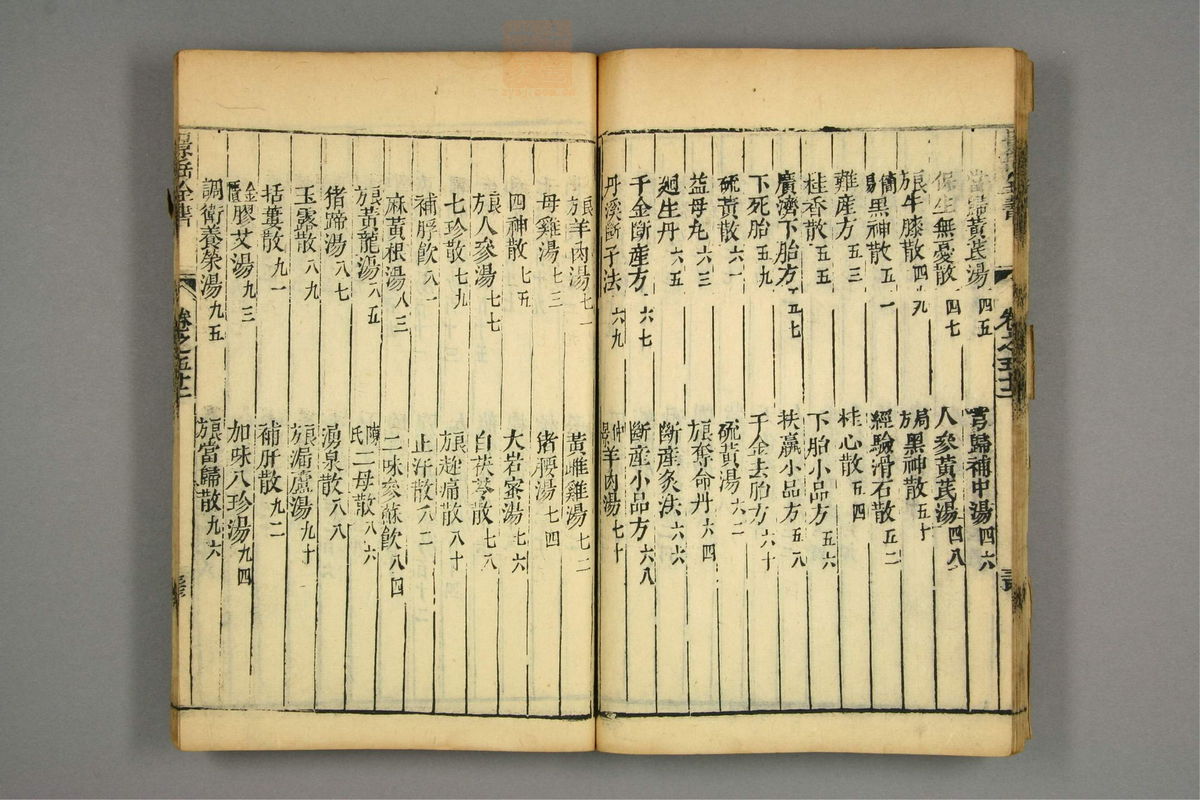 當歸黃芪湯 四五
芎歸補中湯 四六
保生無憂散 四七
人參黃芪湯 四八
良方牛膝散 四九
局方黑神散 五十
簡易黑神散 五一
經驗滑石散 五二
難産方 五三
桂心散 五四
桂香散 五五
下胎小品方 五六
廣濟下胎方 五七
扶羸小品方 五八
下死胎 五九
千金去胎方 六十
硫黃散 六一
硫黃湯 六二
益母丸 六三
良方奪命丹 六四
廻生丹 六五
斷産灸法 六六
千金斷産方 六七
斷産小品方 六八
丹溪斷子法 六九
仲景羊肉湯 七十
良方羊肉湯 七一
黃雌雞湯 七二
母雞湯 七三
猪腰湯 七四
四神散 七五
大岩蜜湯 七六
良方人參湯 七七
白茯苓散 七八
七珍散 七九
良方趂痛散 八十
補脬飮 八一
止汗散 八二
麻黃根湯 八三
二味參蘇飮 八四
良方黃龍湯 八五
陳氏二母散 八六
猪蹄湯 八七
湧泉散 八八
玉露散 八九
良方漏蘆湯 九十
括蔞散 九一
補肝散 九二
金匱膠艾湯 九三
加味八珍湯 九四
調衛養榮湯 九五
良方當歸散 九六
景岳全書
卷之五十二